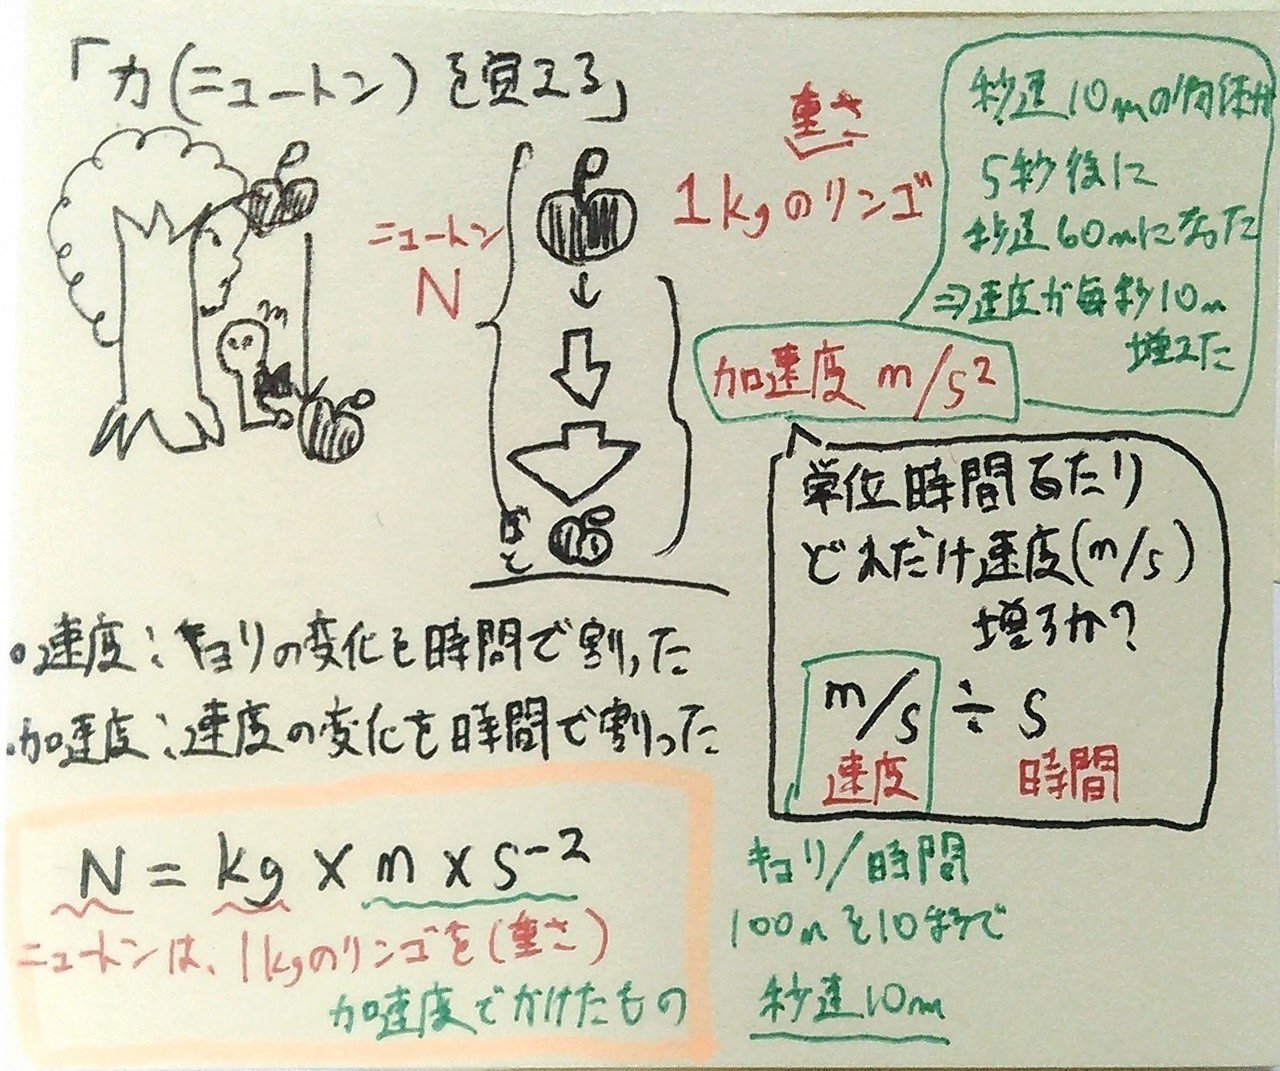 「力(ニュートン)を覚える」
重さ
1kgのリンゴ
ニュートン
N
秒速10mの物体が
5秒後に
秒速60mになった
⇒速度が毎秒10m
増えた
加速度 m/s²
単位時間あたり
どれだけ速度(m/s)
増るか?
m/s ÷ s
速度 時間
キョリ/時間
100mを10秒で
秒速10m
・速度:キョリの変化を時間で割った
・加速度:速度の変化を時間で割った
N = kg × m × s⁻²
ニュートンは、1kgのリンゴを(重さ)
加速度でかけたもの